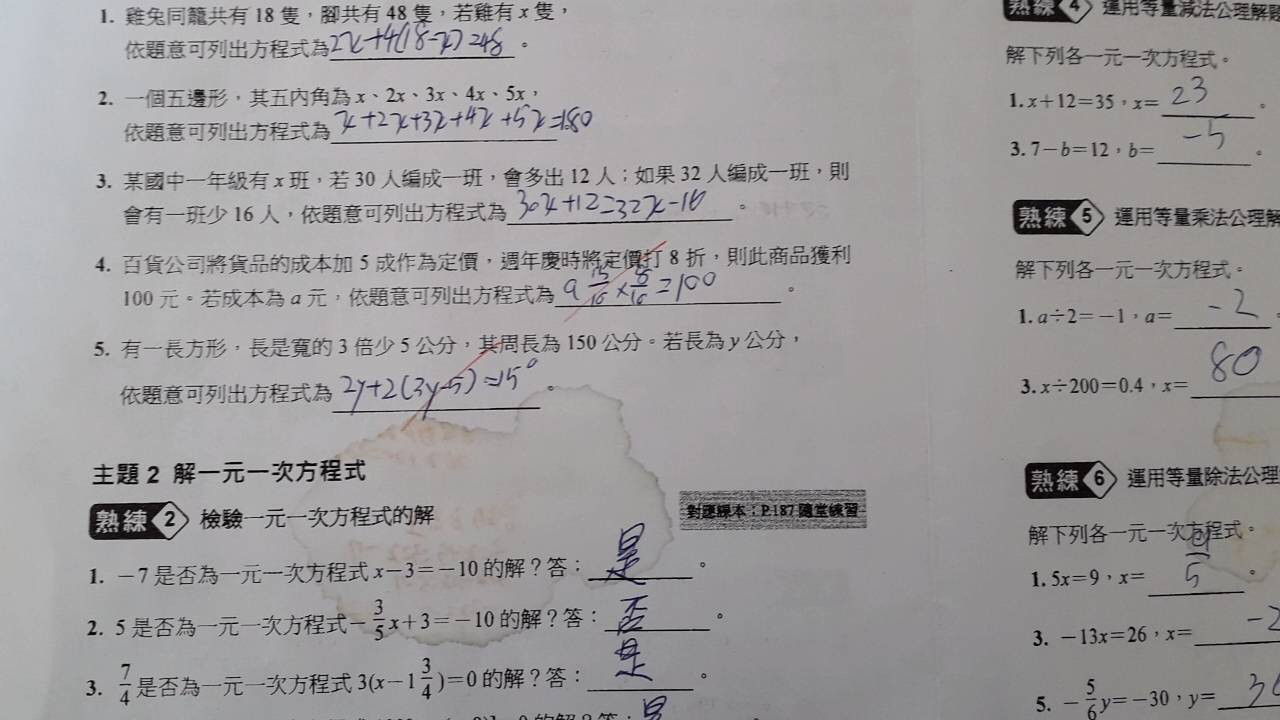 1. 雞兔同籠共有 18 隻，腳共有 48 隻，若雞有 x 隻，
依題意可列出方程式為2x+4(18-x)=48。
2. 一個五邊形，其五內角為 x、2x、3x、4x、5x，
依題意可列出方程式為x+2x+3x+4x+5x=180
3. 某國中一年級有 x 班，若 30 人編成一班，會多出 12 人；如果 32 人編成一班，則
會有一班少 16 人，依題意可列出方程式為30x+12=32x-16。
4. 百貨公司將貨品的成本加 5 成作為定價，週年慶時將定價打 8 折，則此商品獲利
100 元。若成本為 a 元，依題意可列出方程式為a 15/10 × 8/10 =100。
5. 有一長方形，長是寬的 3 倍少 5 公分，其周長為 150 公分。若長為 y 公分，
依題意可列出方程式為2y+2(3y-5)=150。
主題 2 解一元一次方程式
熟練 2 檢驗一元一次方程式的解
對應課本：P.187 隨堂練習
1. －7 是否為一元一次方程式 x－3＝－10 的解？答：是。
2. 5 是否為一元一次方程式－3/5x＋3＝－10 的解？答：否。
3. 7/4 是否為一元一次方程式 3(x－1 3/4)＝0 的解？答：是。
熟練 4 運用等量減法公理解
解下列各一元一次方程式。
1. x＋12＝35，x＝23。
3. 7－b＝12，b＝-5。
熟練 5 運用等量乘法公理解
解下列各一元一次方程式。
1. a÷2＝－1，a＝-2。
3. x÷200＝0.4，x＝80
熟練 6 運用等量除法公理
解下列各一元一次方程式。
1. 5x＝9，x＝9/5。
3. －13x＝26，x＝-2
5. －5/6y＝－30，y＝